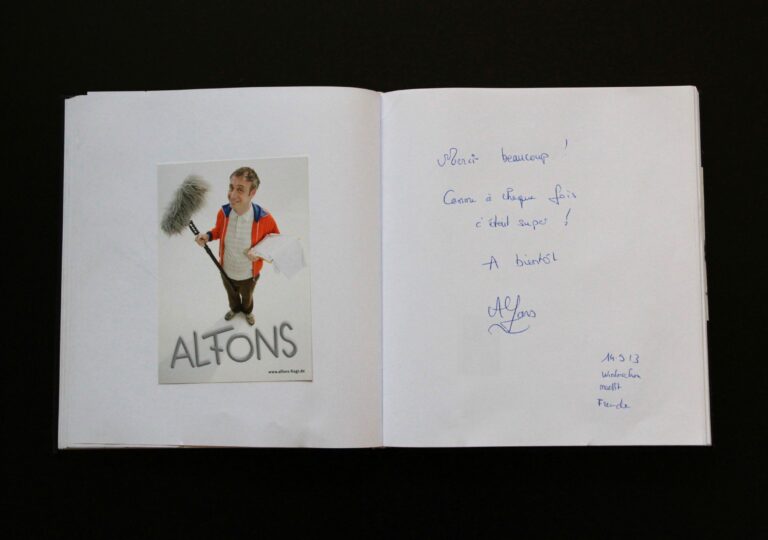 ALFONS
www.alfons-fragt.de
Merci beaucoup !
Comme à chaque fois
c'était super !
A bientôt
Alfons
14 9 13
macht
Freude